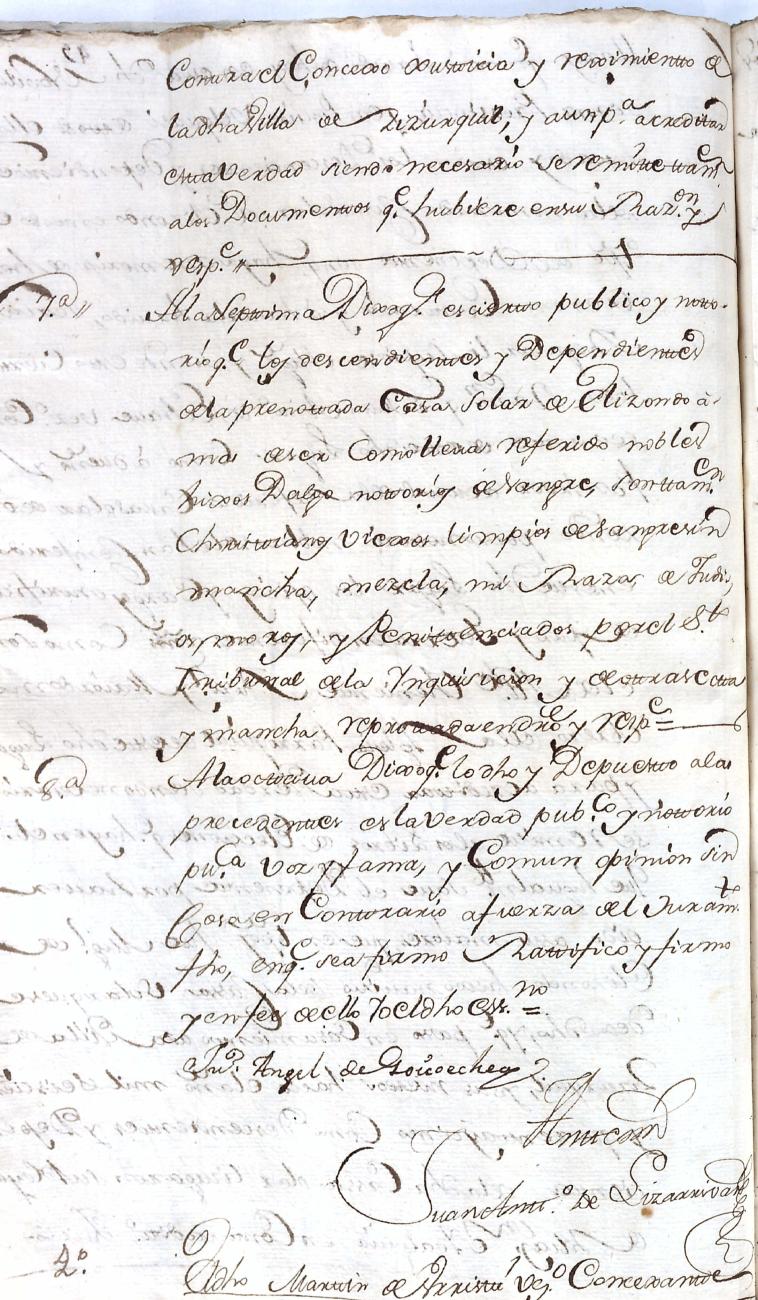 Contra el Concexo Justicia y reximiento de
la dha Villa de Zizurquil, y aun p.a acreditar
esta verdad siendo necesario se remite
a los Documentos q.e hubiere en su Razon y
resp.e
7.a A la Septima Dixo q.e es cierto publico y noto-
rio q.e los descendientes y Dependientes
de la prenotada Casa Solar de Elizondo a-
mas de ser Como lleva referido nobles
hixos Dalgo notorios de sangre, son ttam.en
Christianos viexos limpios de sangre sin
mancha, mezcla, ni Raza de Judi,
os, moros, y Penitenciados por el S.to
Tribunal de la Ynquisicion y de otra secta
y mancha reprovada en dro y resp.e =
8.a A la octava Dixo q.e lo dho y Depuesto a las
precedentes es la verdad pub.co y notorio
pu.ca voz y fama, y Comun opinion sin
Cosa en Contrario a fuerza del Juram.to
fho, en q.e se afirmo Rattifico y firmo
y en fee de ello Yo el dho ess.no =
Ju.o Angel de Goicoechea
Antte mi
Juan Antt.o de Lizarribar
4.o
El dho Martin de Arristi